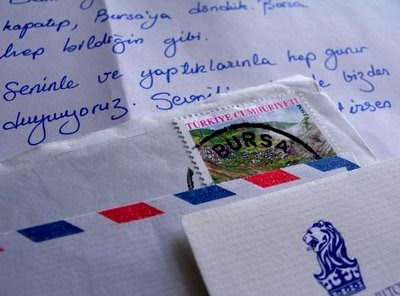 kapatıp, Bursa'ya döndük. Bursa
hep bildiğin gibi.
Seninle ve yaptıklarınla hep gurur
duyuyoruz. bizden
TÜRKİYE CUMHURİYETİ
BURSA